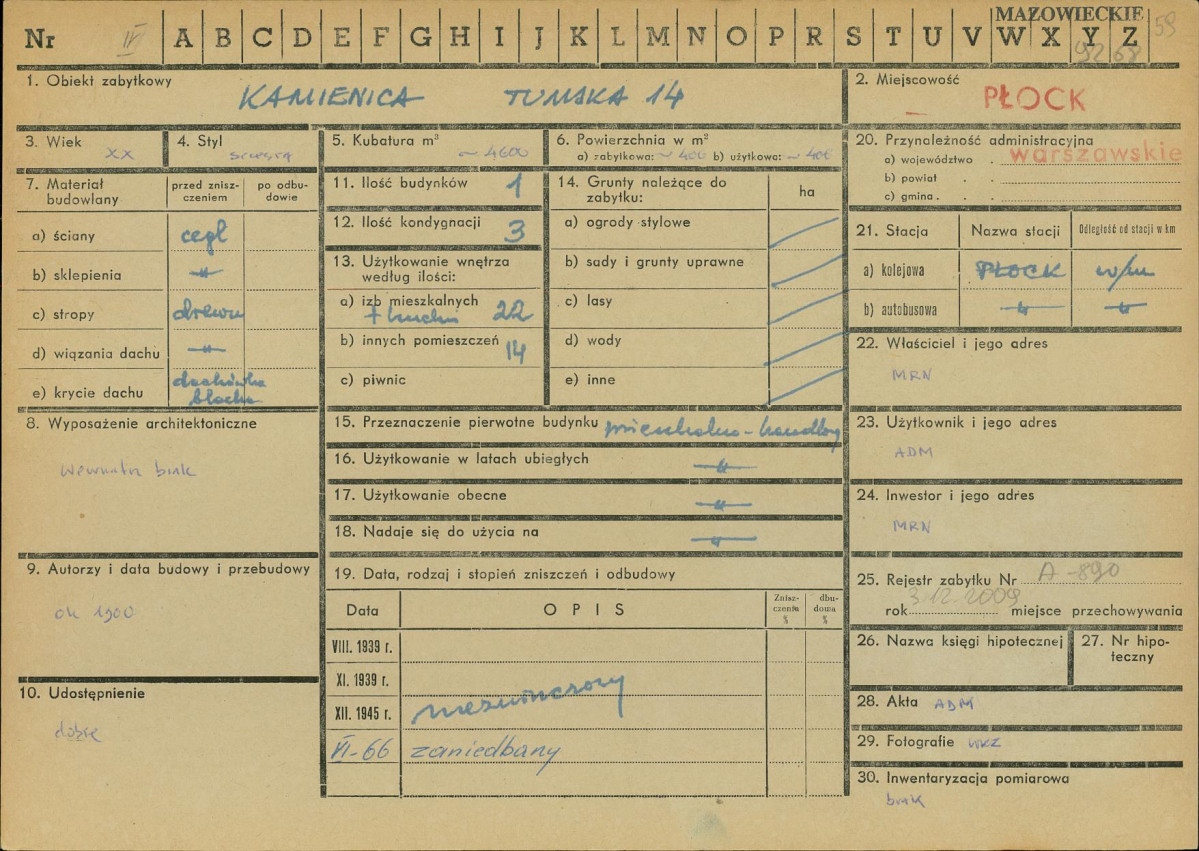 MAZOWIECKIE
59
Nr IV A B C D E F G H I J K L M N O P R S T U V W X Y Z
9268
1. Obiekt zabytkowy
KAMIENICA TUMSKA 14
2. Miejscowość
PŁOCK
3. Wiek
XX
4. Styl
5. Kubatura m³
~ 4600
6. Powierzchnia w m²
a) zabytkowa: ~ 400 b) użytkowa: ~ 400
20. Przynależność administracyjna
a) województwo warszawskie
b) powiat
c) gmina
7. Materiał budowlany
przed zniszczeniem
po odbudowie
a) ściany cegł
b) sklepienia -"-
c) stropy drewn
d) wiązania dachu -"-
e) krycie dachu dachówka
blacha
11. Ilość budynków 1
12. Ilość kondygnacji 3
13. Użytkowanie wnętrza
według ilości:
a) izb mieszkalnych 22
+ kuchni
b) innych pomieszczeń 14
c) piwnic
14. Grunty należące do
zabytku:
ha
a) ogrody stylowe
b) sady i grunty uprawne
c) lasy
d) wody
e) inne
21. Stacja
Nazwa stacji
Odległość od stacji w km
a) kolejowa PŁOCK w/m
b) autobusowa -"- -"-
22. Właściciel i jego adres
MRN
8. Wyposażenie architektoniczne
wewnątrz brak
15. Przeznaczenie pierwotne budynku mieszkalno-handlow
16. Użytkowanie w latach ubiegłych -"-
17. Użytkowanie obecne -"-
18. Nadaje się do użycia na -"-
23. Użytkownik i jego adres
ADM
24. Inwestor i jego adres
MRN
9. Autorzy i data budowy i przebudowy
ok 1900
10. Udostępnienie
dobre
19. Data, rodzaj i stopień zniszczeń i odbudowy
Data
OPIS
Zniszczenia %
dbudowa %
VIII. 1939 r.
XI. 1939 r.
XII. 1945 r. niezniszczony
VI-66 zaniedbany
25. Rejestr zabytku Nr A-890
rok 3.12.2009 miejsce przechowywania
26. Nazwa księgi hipotecznej
27. Nr hipoteczny
28. Akta ADM
29. Fotografie WKZ
30. Inwentaryzacja pomiarowa
brak